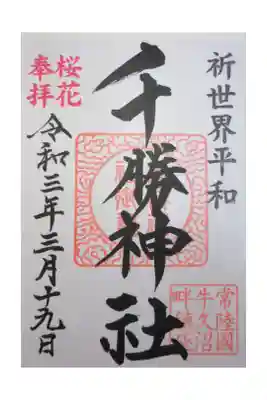 祈世界平和
千勝神社
桜花
奉拝
令和三年三月十九日
常陸國
牛久沼